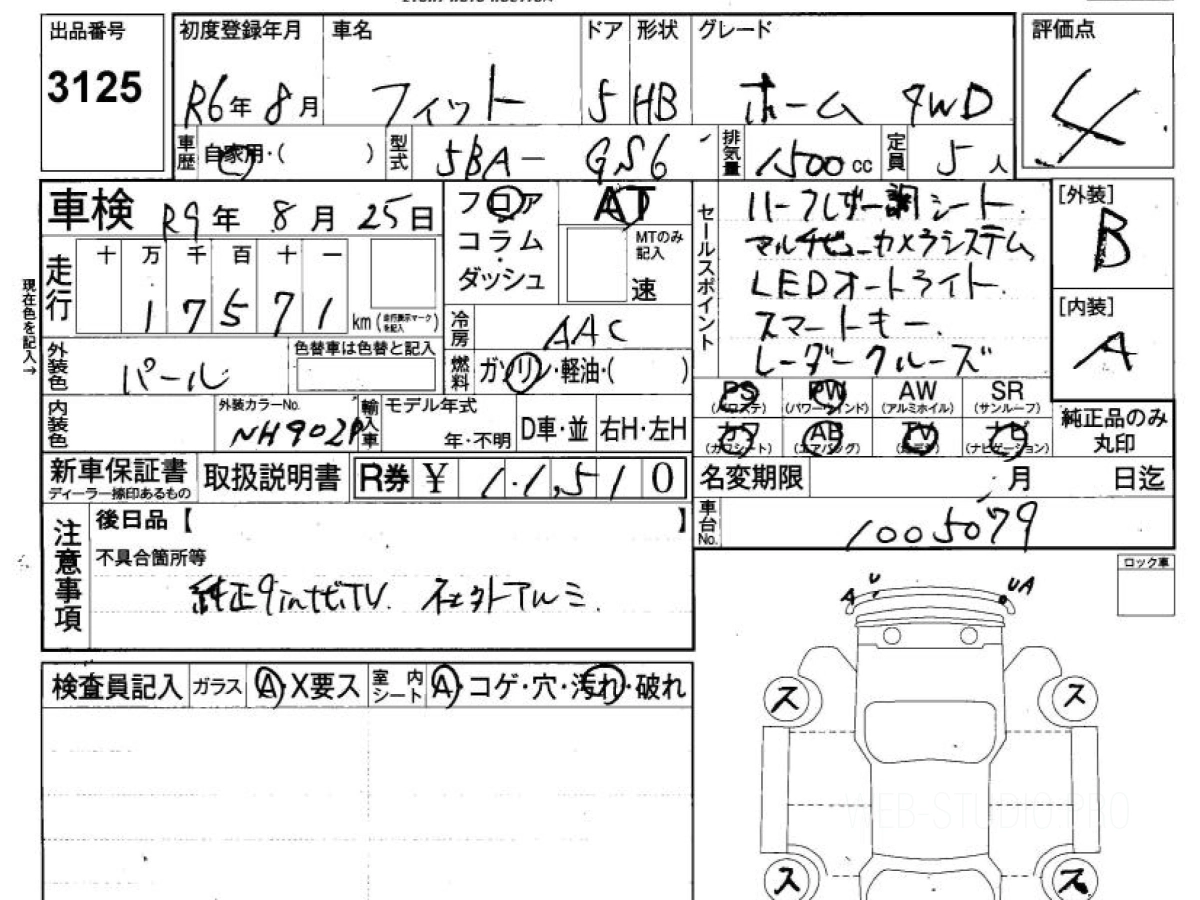 出品番号
3125
初度登録年月 車名 ドア 形状 グレード
R6年 8月 フィット 5 HB ホーム 4WD
評価点
4
車歴 自家用・( ) 型式 5BA- GS6 排気量 1500cc 定員 5人
車検 R9年 8月 25日
フロア AT
コラム
ダッシュ
MTのみ記入
速
セールスポイント
ハーフレザー調シート.
マルチビューカメラシステム
LEDオートライト.
スマートキー.
レーダークルーズ
[外装]
B
[内装]
A
現在色を記入→
走行 十 万 千 百 十 一
1 7 5 7 1 km (走行表示マークを記入)
冷房 AAC
外装色 パール 色替車は色替と記入
燃料 ガソリン・軽油・( )
PS PW AW SR
(パワステ) (パワーウインド) (アルミホイル) (サンルーフ)
カワ AB TV ナビ
(カワシート) (エアバッグ) (ナビゲーション)
純正品のみ
丸印
内装色 外装カラーNo. NH902P 輸入車 モデル年式 年・不明 D車・並 右H・左H
新車保証書
ディーラー捺印あるもの
取扱説明書 R券 ¥ 11,510
名変期限 月 日迄
車台No. 1005079
注意事項
後日品【 】
不具合箇所等
純正9inナビTV. 社外アルミ.
ロック車
A U UA
検査員記入 ガラス A・X要ス 室内シート A・コゲ・穴・汚れ・破れ
ス ス
WEB-STUDIO.PRO
ス ス